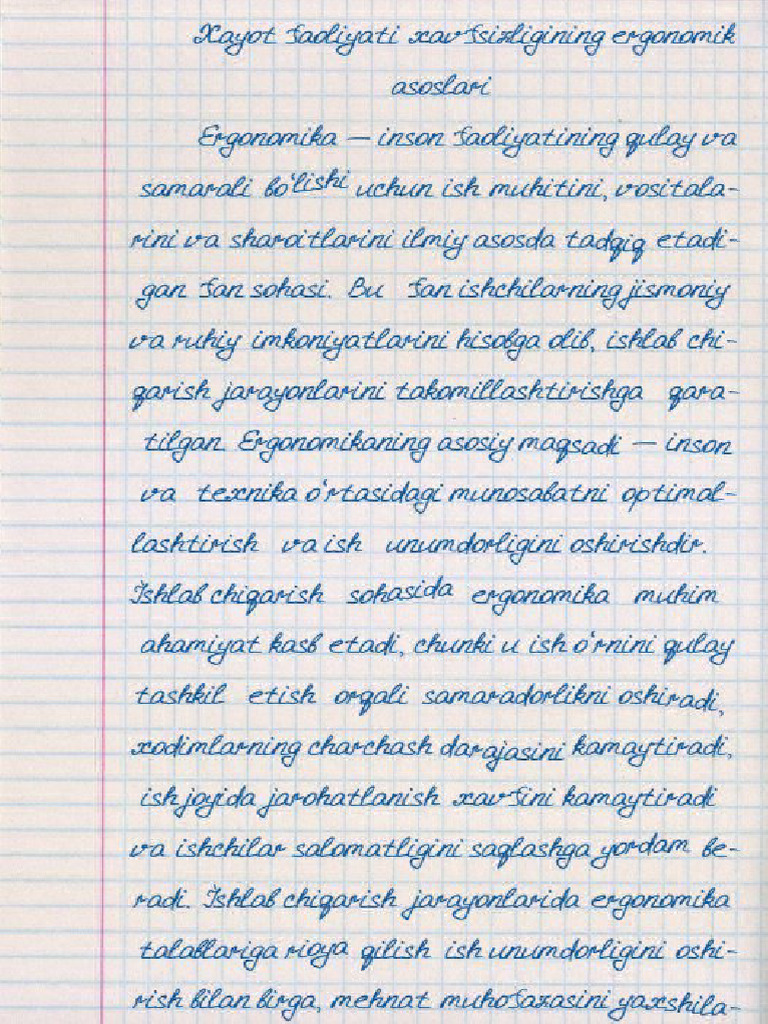 Xayot faoliyati xavfsizligining ergonomik
asoslari
Ergonomika — inson faoliyatining qulay va
samarali bo'lishi uchun ish muhitini, vositala-
rini va sharoitlarini ilmiy asosda tadqiq etadi-
gan fan sohasi. Bu fan ishchilarning jismoniy
va ruhiy imkoniyatlarini hisobga olib, ishlab chi-
qarish jarayonlarini takomillashtirishga qara-
tilgan. Ergonomikaning asosiy maqsadi — inson
va texnika o'rtasidagi munosabatni optimal-
lashtirish va ish unumdorligini oshirishdir.
Ishlab chiqarish sohasida ergonomika muhim
ahamiyat kasb etadi, chunki u ish o'rnini qulay
tashkil etish orqali samaradorlikni oshiradi,
xodimlarning charchash darajasini kamaytiradi,
ish joyida jarohatlanish xavfini kamaytiradi
va ishchilar salomatligini saqlashga yordam be-
radi. Ishlab chiqarish jarayonlarida ergonomika
talablariga rioya qilish ish unumdorligini oshi-
rish bilan birga, mehnat muhofazasini yaxshila-